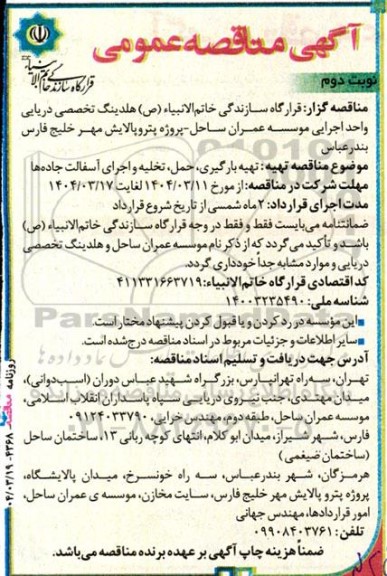 آگهی مناقصه عمومی
قرارگاه سازندگی خاتم الانبیاء
نوبت دوم
مناقصه گزار: قرارگاه سازندگی خاتم‌الانبیاء (ص) هلدینگ تخصصی دریایی
واحد اجرایی موسسه عمران ساحل-پروژه پتروپالایش مهر خلیج فارس
بندرعباس
موضوع مناقصه تهیه: تهیه بارگیری، حمل، تخلیه و اجرای آسفالت جاده‌ها
مهلت شرکت در مناقصه: از مورخ ۱۴۰۴/۰۳/۱۱ لغایت ۱۴۰۴/۰۳/۱۷
مدت اجرای قرارداد: ۲ ماه شمسی از تاریخ شروع قرارداد
ضمانتنامه می‌بایست فقط و فقط در وجه قرارگاه سازندگی خاتم‌الانبیاء (ص)
باشد و تأکید می‌گردد که از ذکر نام موسسه عمران ساحل و هلدینگ تخصصی
دریایی و موارد مشابه جداً خودداری گردد.
کد اقتصادی قرارگاه خاتم‌الانبیاء: ۴۱۱۳۳۱۶۶۳۷۱۹
شناسه ملی: ۱۴۰۰۳۲۳۵۴۹۰
این مؤسسه در رد کردن و یا قبول کردن پیشنهاد مختار است.
سایر اطلاعات و جزئیات مربوط در اسناد مناقصه درج شده است.
آدرس جهت دریافت و تسلیم اسناد مناقصه:
تهران، سه‌راه تهرانپارس، بزرگراه شهید عباس دوران (اسب‌دوانی)،
میدان مهتدی، جنب نیروی دریایی سپاه پاسداران انقلاب اسلامی،
موسسه عمران ساحل، طبقه دوم، مهندس خزایی ۰۹۱۲۴۰۳۳۷۹۰
فارس، شهر شیراز، میدان ابو کلام، انتهای کوچه ربانی ۱۳، ساختمان ساحل
(ساختمان ضیغمی)
هرمزگان، شهر بندرعباس، سه راه خونسرخ، میدان پالایشگاه،
پروژه پترو پالایش مهر خلیج فارس، سایت مخازن، موسسه ی عمران ساحل،
امور قراردادها، مهندس جهانی
تلفن: ۰۹۹۰۸۴۰۳۷۶۱
ضمناً هزینه چاپ آگهی بر عهده برنده مناقصه می‌باشد.
روزنامه مناقصه ۴۳۶۸-۰۴/۰۳/۱۹
ParsNamadData